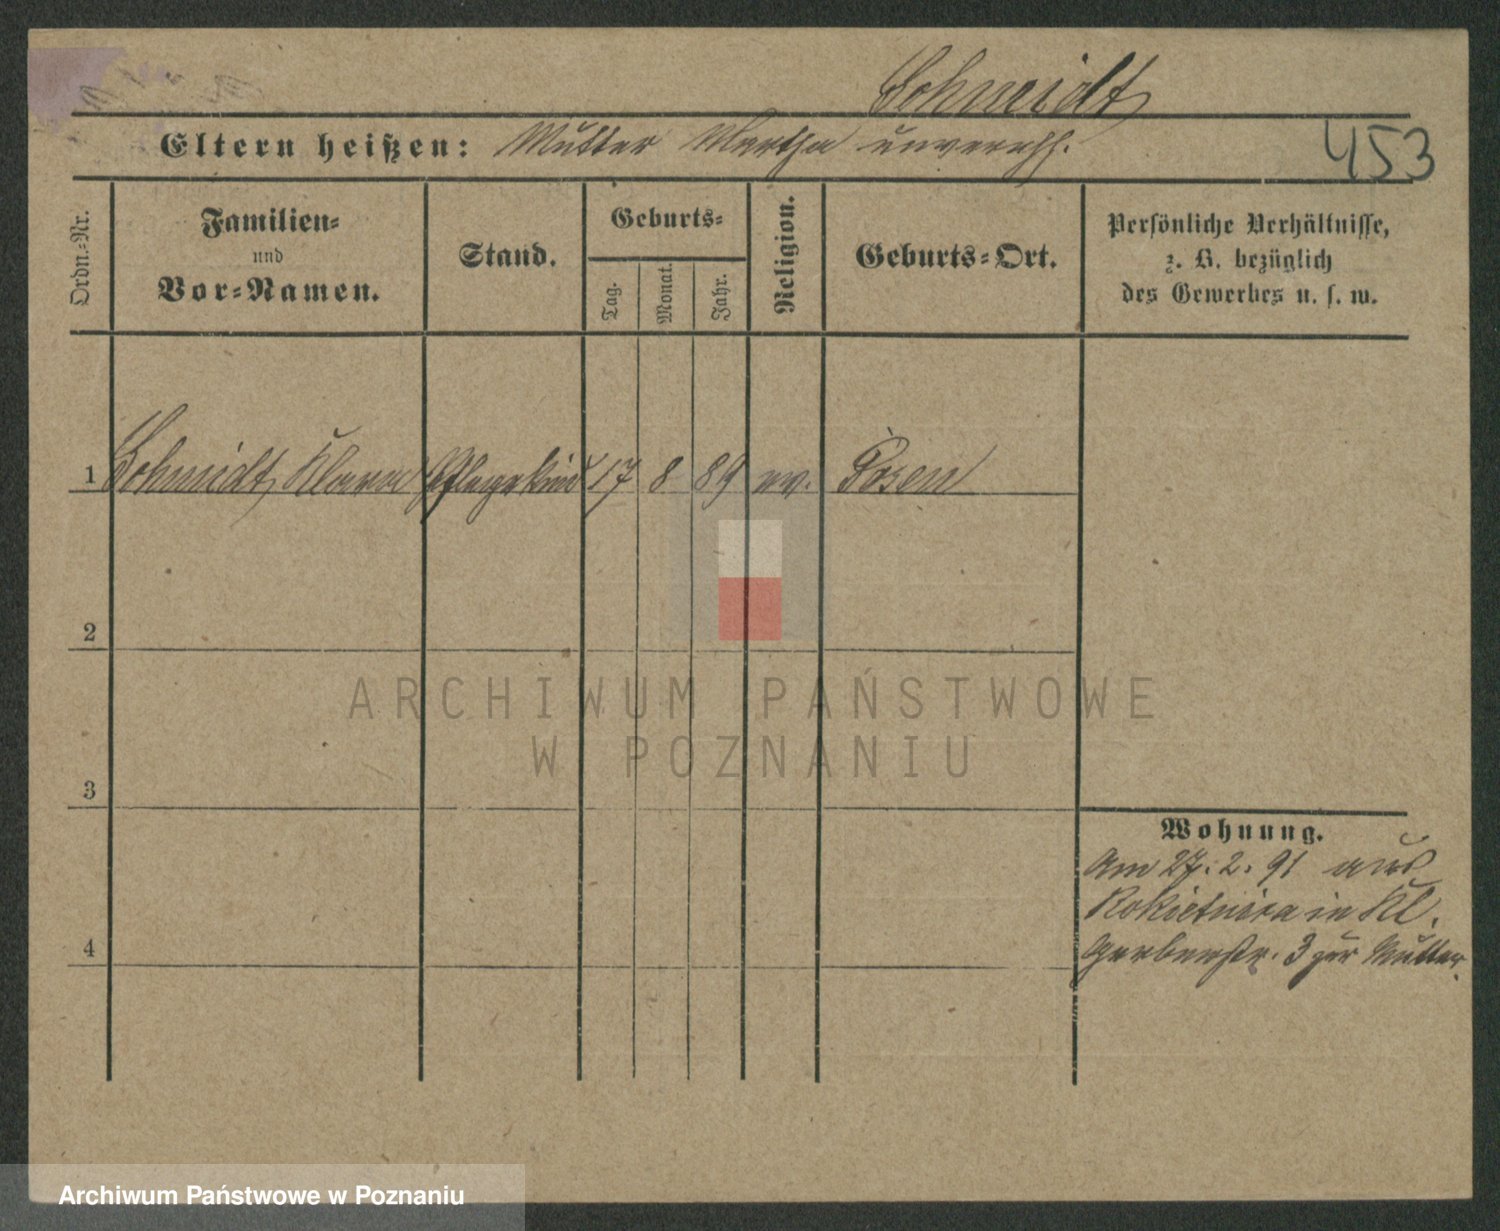 Schmidt
Eltern heißen: Mutter Martha unverehl.
453
Ordn.-Nr.
Familien-
und
Vor-Namen.
Stand.
Geburts-
Tag.
Monat.
Jahr.
Religion.
Geburts-Ort.
Persönliche Verhältnisse,
z. B. bezüglich
des Gewerbes u. s. w.
1 Schmidt, Klara Pflegekind 17 8 89 ev. Posen
2
3
4
Wohnung.
Am 27. 2. 91 aus
Rokietnica in Kl.
Gerberstr. 3 zur Mutter.
ARCHIWUM PAŃSTWOWE
W POZNANIU
Archiwum Państwowe w Poznaniu